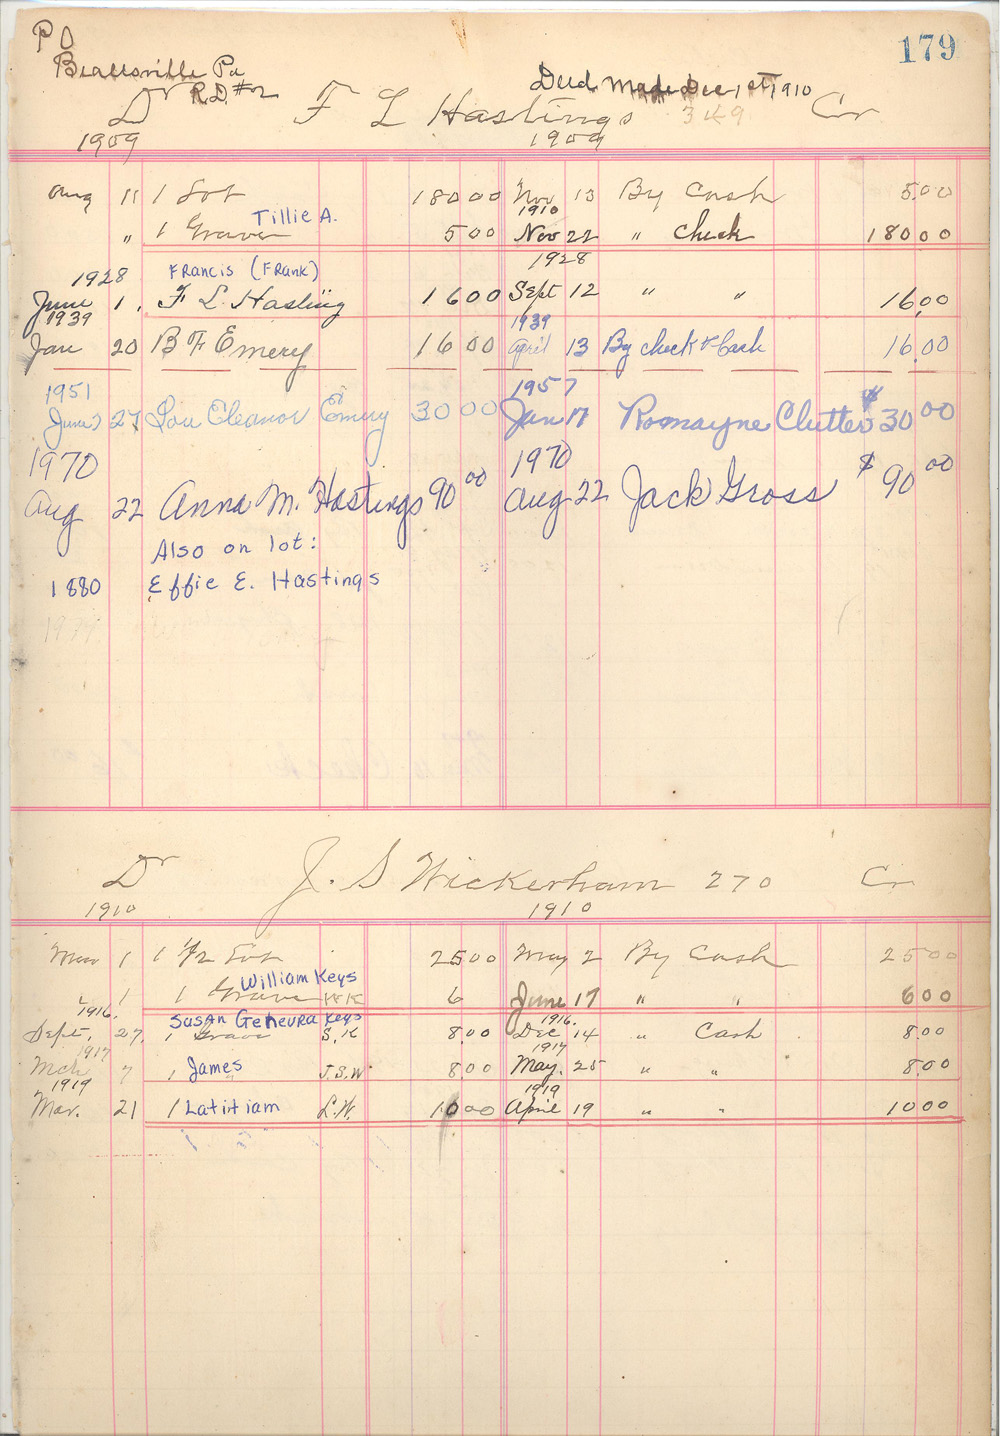 179
P O
Beallsville Pa
R.D. #2
Deed Made Dec 1st 1910
Dr F L Hastings 349 Cr
1909 1909
Aug 11 1 Lot 180 00 Nov 13 By Cash 5.00
Tillie A. 1910
" 1 Grave 5 00 Nov 22 " Check 180 00
1928 Francis (Frank) 1928
June 1. F L Hasting 16 00 Sept 12 " " 16.00
1939 1939
Jan 20 B F Emery 16 00 April 13 By check & Cash 16.00
1951 1957
June 27 Lou Eleanor Emery 30 00 Jan 17 Romayne Clutter $30 00
1970 1970
Aug 22 Anna M. Hastings 90 00 Aug 22 Jack Gross $90 00
Also on lot:
1880 Effie E. Hastings
Dr J. S Wickerham 270 Cr
1910 1910
Mar 1 1 1/2 Lot 25 00 May 2 By Cash 25 00
William Keys
1 1 Grave W K 6 June 17 " " 6 00
1916. Susan Genevra Keys 1916.
Sept. 27, 1 Grave S. K 8.00 Dec 14 " Cash 8.00
1917 1917
Mch 7 1 James J.S.W 8.00 May. 25 " " 8.00
1919 1919
Mar. 21 1 Latitiam L.W. 10 00 April 19 " " 10 00